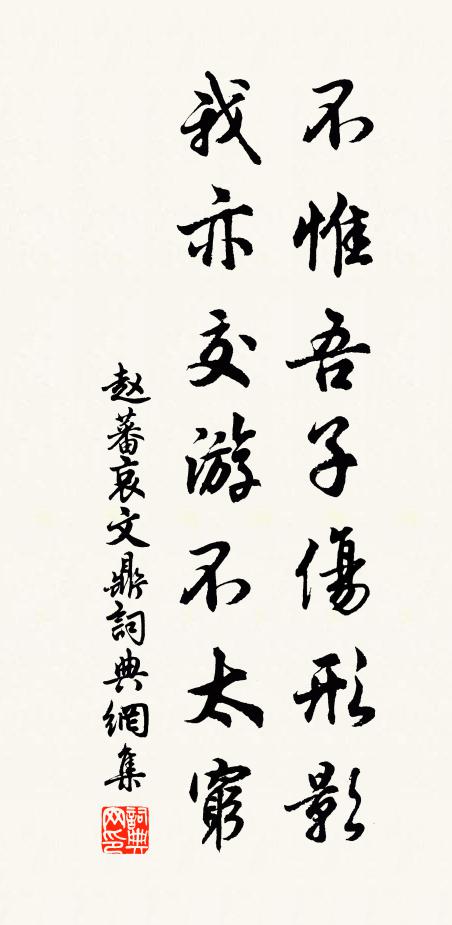 不惟吾子傷形影
我亦交游不太窮
赵蕃哀文鼎詞典網集
詞典網印